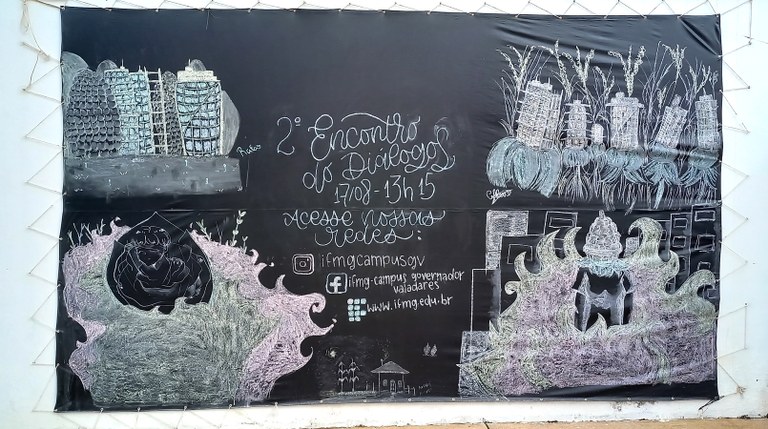 2º Encontro
do Diálogos
17/08 - 13h15
Acesse nossas
redes:
ifmgcampusgv
ifmg-campus governador
valadares
www.ifmg.edu.br